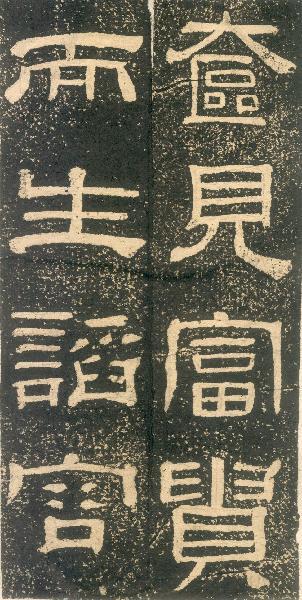 奩見富貴
而生諂容